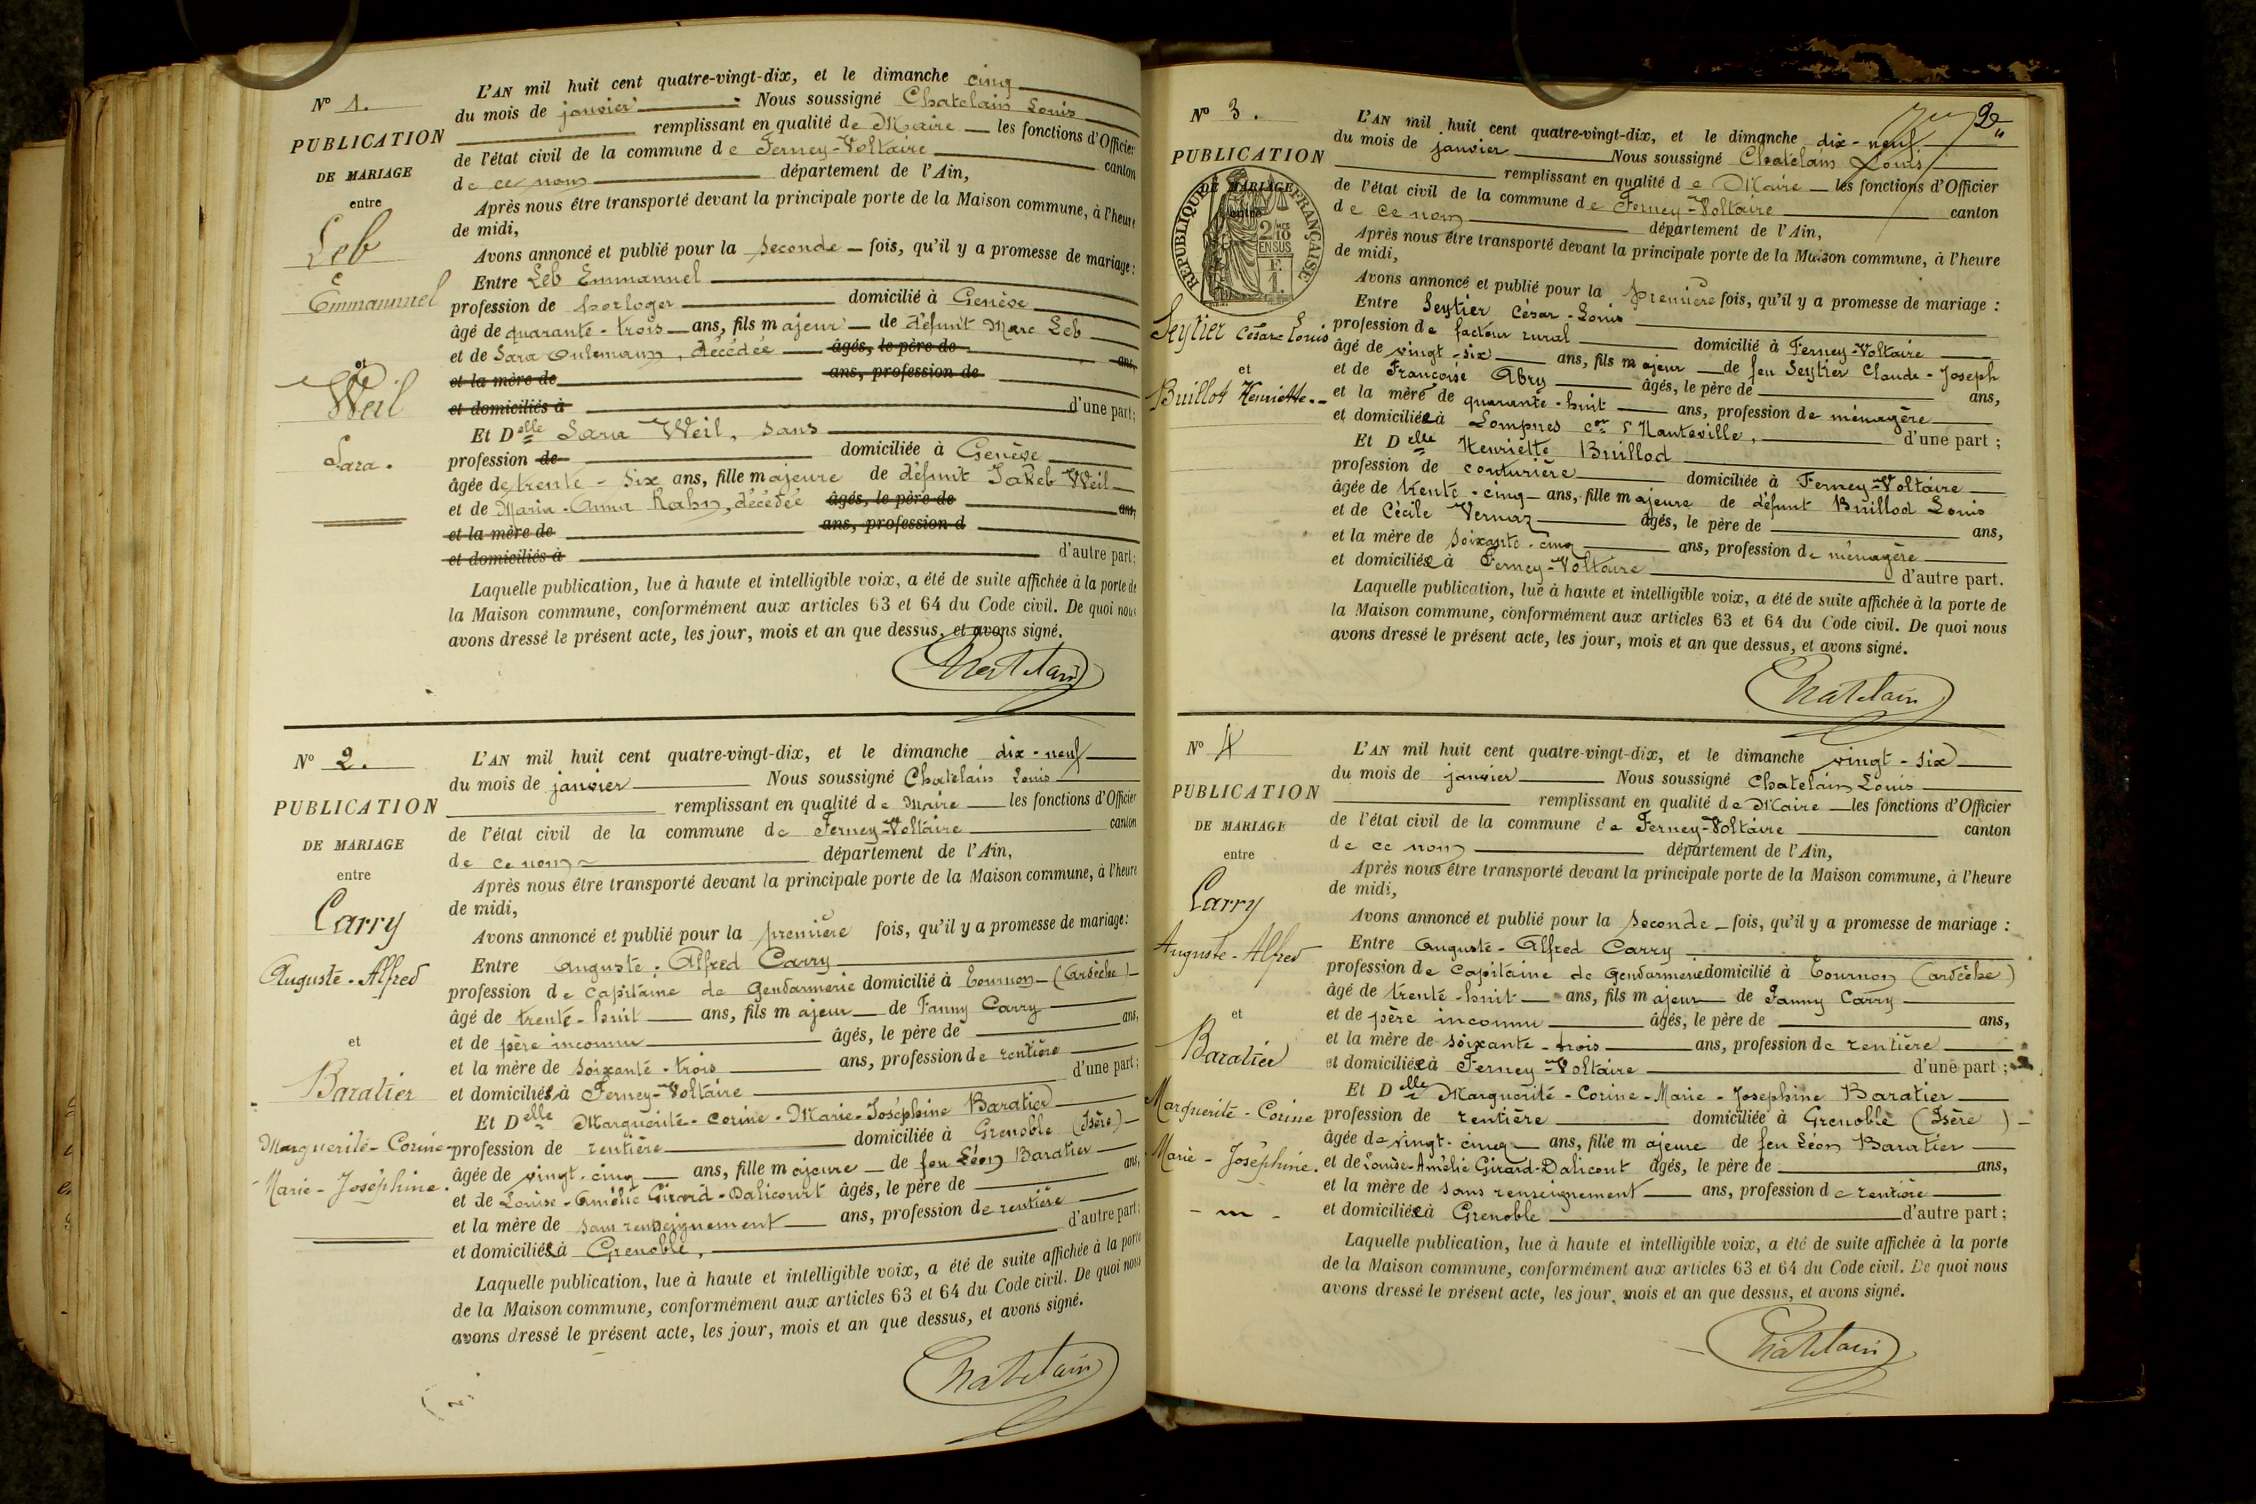 N° 1.
PUBLICATION
DE MARIAGE
entre
Leb
Emmanuel
et
Weil
Sara.
L'AN mil huit cent quatre-vingt-dix, et le dimanche cinq
du mois de janvier Nous soussigné Chatelain Louis
remplissant en qualité de Maire les fonctions d'Officier
de l'état civil de la commune de Ferney-Voltaire canton
de ce nom département de l'Ain,
Après nous être transporté devant la principale porte de la Maison commune, à l'heure
de midi,
Avons annoncé et publié pour la seconde fois, qu'il y a promesse de mariage :
Entre Leb Emmanuel
profession de horloger domicilié à Genève
âgé de quarante-trois ans, fils majeur de défunt Marc Leb
et de Sara , décédée âgés, le père de ans,
et la mère de ans, profession de
et domiciliés à d'une part;
Et Delle Sara Weil, sans
profession de domiciliée à Genève
âgée de trente-six ans, fille majeure de défunt Jakeb Weil
et de Maria-Anna Kahn, décédée âgés, le père de ans,
et la mère de ans, profession d
et domiciliés à d'autre part;
Laquelle publication, lue à haute et intelligible voix, a été de suite affichée à la porte de
la Maison commune, conformément aux articles 63 et 64 du Code civil. De quoi nous
avons dressé le présent acte, les jour, mois et an que dessus, et avons signé.
Chatelain
N° 2.
PUBLICATION
DE MARIAGE
entre
Carry
Auguste-Alfred
et
Baratier
Marguerite-Corine
Marie-Joséphine.
L'AN mil huit cent quatre-vingt-dix, et le dimanche dix-neuf
du mois de janvier Nous soussigné Chatelain Louis
remplissant en qualité de Maire les fonctions d'Officier
de l'état civil de la commune de Ferney-Voltaire canton
de ce nom département de l'Ain,
Après nous être transporté devant la principale porte de la Maison commune, à l'heure
de midi,
Avons annoncé et publié pour la première fois, qu'il y a promesse de mariage :
Entre Auguste-Alfred Carry
profession de Capitaine de Gendarmerie domicilié à Tournon (Ardèche)
âgé de trente-huit ans, fils majeur de Fanny Carry
et de père inconnu âgés, le père de ans,
et la mère de soixante-trois ans, profession de rentière
et domiciliée à Ferney-Voltaire d'une part;
Et Delle Marguerite-Corine-Marie-Joséphine Baratier
profession de rentière domiciliée à Grenoble (Isère)
âgée de vingt-cinq ans, fille majeure de feu Léon Baratier
et de Louise-Amélie Girard-Dalicourt âgés, le père de ans,
et la mère de sans renseignement ans, profession de rentière
et domiciliée à Grenoble, d'autre part;
Laquelle publication, lue à haute et intelligible voix, a été de suite affichée à la porte
de la Maison commune, conformément aux articles 63 et 64 du Code civil. De quoi nous
avons dressé le présent acte, les jour, mois et an que dessus, et avons signé.
Chatelain
2
N° 3.
PUBLICATION
DE MARIAGE
entre
REPUBLIQUE FRANÇAISE
2/10
EN SUS
Seytier César Louis
et
Buillot Henriette.
L'AN mil huit cent quatre-vingt-dix, et le dimanche dix-neuf
du mois de janvier Nous soussigné Chatelain Louis
remplissant en qualité de Maire les fonctions d'Officier
de l'état civil de la commune de Ferney-Voltaire canton
de ce nom département de l'Ain,
Après nous être transporté devant la principale porte de la Maison commune, à l'heure
de midi,
Avons annoncé et publié pour la première fois, qu'il y a promesse de mariage :
Entre Seytier César-Louis
profession de facteur rural domicilié à Ferney-Voltaire
âgé de vingt-six ans, fils majeur de feu Seytier Claude-Joseph
et de Françoise Abry âgés, le père de ans,
et la mère de quarante-huit ans, profession de ménagère
et domiciliée à Lompnes con d'Hauteville, d'une part ;
Et Delle Henriette Buillod
profession de couturière domiciliée à Ferney-Voltaire
âgée de trente-cinq ans, fille majeure de défunt Buillod Louis
et de Cécile Vernaz âgés, le père de ans,
et la mère de soixante-cinq ans, profession de ménagère
et domiciliée à Ferney-Voltaire d'autre part.
Laquelle publication, lue à haute et intelligible voix, a été de suite affichée à la porte de
la Maison commune, conformément aux articles 63 et 64 du Code civil. De quoi nous
avons dressé le présent acte, les jour, mois et an que dessus, et avons signé.
Chatelain
N° 4
PUBLICATION
DE MARIAGE
entre
Carry
Auguste-Alfred
et
Baratier
Marguerite-Corine
Marie-Joséphine.
L'AN mil huit cent quatre-vingt-dix, et le dimanche vingt-six
du mois de janvier Nous soussigné Chatelain Louis
remplissant en qualité de Maire les fonctions d'Officier
de l'état civil de la commune de Ferney-Voltaire canton
de ce nom département de l'Ain,
Après nous être transporté devant la principale porte de la Maison commune, à l'heure
de midi,
Avons annoncé et publié pour la seconde fois, qu'il y a promesse de mariage :
Entre Auguste-Alfred Carry
profession de Capitaine de Gendarmerie domicilié à Tournon (Ardèche)
âgé de trente-huit ans, fils majeur de Fanny Carry
et de père inconnu âgés, le père de ans,
et la mère de soixante-trois ans, profession de rentière
et domiciliée à Ferney-Voltaire d'une part ;
Et Delle Marguerite-Corine-Marie-Josephine Baratier
profession de rentière domiciliée à Grenoble (Isère)
âgée de vingt-cinq ans, fille majeure de feu Léon Baratier
et de Louise-Amélie Girard-Dalicourt âgés, le père de ans,
et la mère de sans renseignement ans, profession de rentière
et domiciliée à Grenoble d'autre part ;
Laquelle publication, lue à haute et intelligible voix, a été de suite affichée à la porte
de la Maison commune, conformément aux articles 63 et 64 du Code civil. De quoi nous
avons dressé le présent acte, les jour, mois et an que dessus, et avons signé.
Chatelain